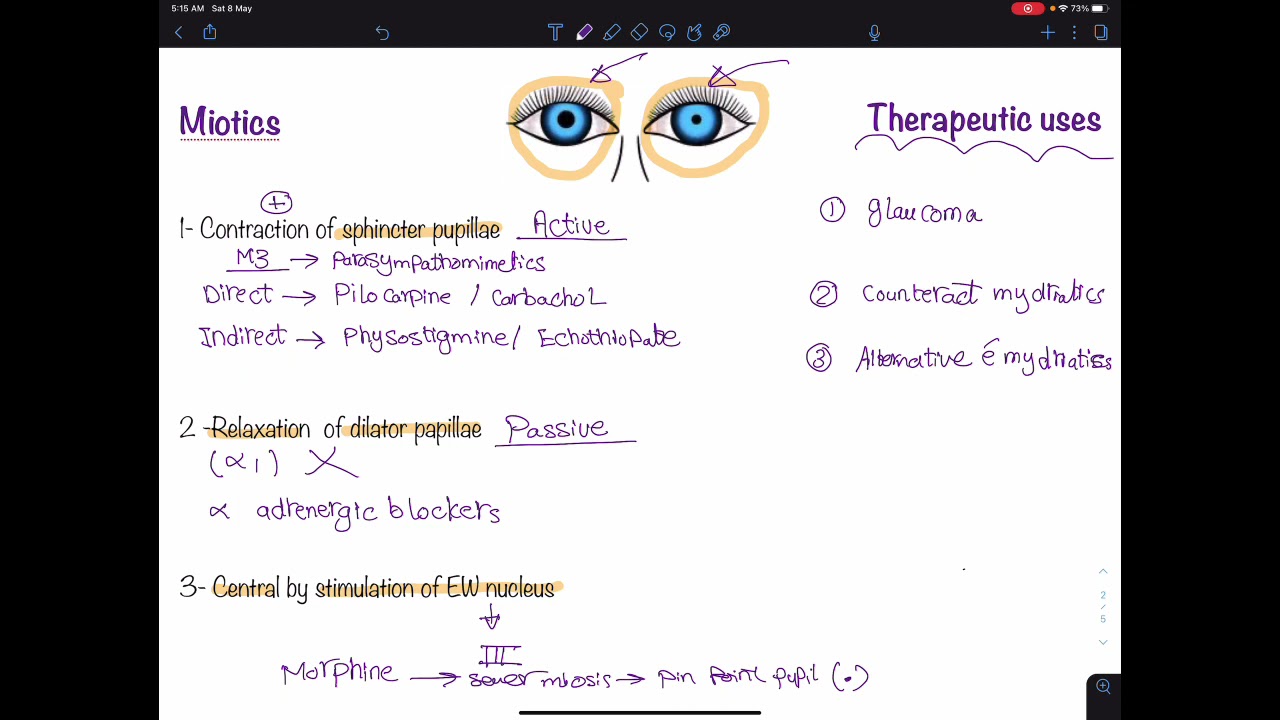 5:15 AM Sat 8 May
73%
Miotics
Therapeutic uses
+
1- Contraction of sphincter pupillae Active
M3 → Parasympathomimetics
Direct → Pilocarpine / Carbachol
Indirect → Physostigmine / Echothiopate
① glaucoma
② Counteract mydriatics
③ Alternative é mydriatics
2 -Relaxation of dilator papillae Passive
(α1) X
α adrenergic blockers
3- Central by stimulation of EW nucleus
III
Morphine → sever miosis → pin point pupil (.)
2
/
5